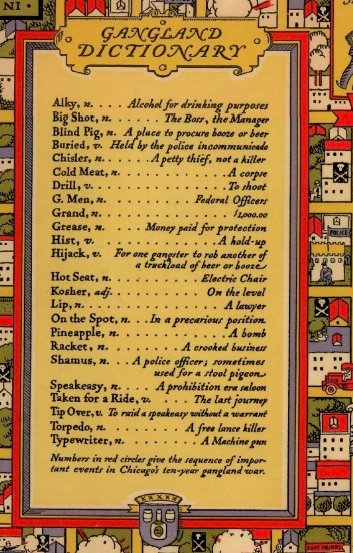 NI
GANGLAND
DICTIONARY
Alky, n. . . . . Alcohol for drinking purposes
Big Shot, n. . . . . . The Boss, the Manager
Blind Pig, n. . A place to procure booze or beer
Buried, v. Held by the police incommunicado
Chisler, n. . . . . . A petty thief, not a killer
Cold Meat, n. . . . . . . . . . . . . A corpse
Drill, v. . . . . . . . . . . . . . . . To shoot
G. Men, n. . . . . . . . . . . Federal Officers
Grand, n. . . . . . . . . . . . . . . $1,000.00
Grease, n. . . . . . Money paid for protection
Hist, v. . . . . . . . . . . . . . . . A hold-up
Hijack, v. For one gangster to rob another of
a truckload of beer or booze
Hot Seat, n. . . . . . . . . . . Electric Chair
Kosher, adj. . . . . . . . . . . . On the level
Lip, n. . . . . . . . . . . . . . . . . A lawyer
On the Spot, n. . . . In a precarious position
Pineapple, n. . . . . . . . . . . . . . A bomb
Racket, n. . . . . . . . . A crooked business
Shamus, n. . . . A police officer; sometimes
used for a stool pigeon
Speakeasy, n. . . . . A prohibition era saloon
Taken for a Ride, v. . . . . . The last journey
Tip Over, v. To raid a speakeasy without a warrant
Torpedo, n. . . . . . . . . A free lance killer
Typewriter, n. . . . . . . . . . A Machine gun
Numbers in red circles give the sequence of impor-
tant events in Chicago's ten-year gangland war.
POLICE
SOFT DRINKS